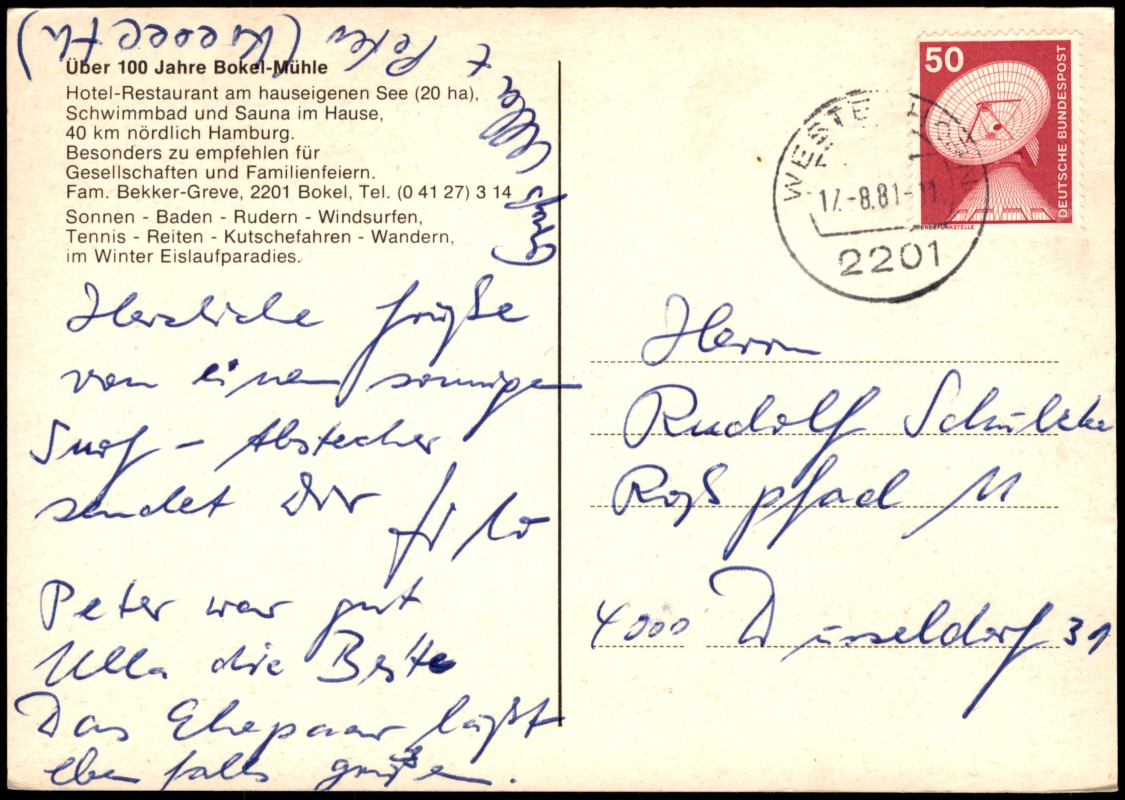 Über 100 Jahre Bokel-Mühle
Hotel-Restaurant am hauseigenen See (20 ha),
Schwimmbad und Sauna im Hause,
40 km nördlich Hamburg.
Besonders zu empfehlen für
Gesellschaften und Familienfeiern.
Fam. Bekker-Greve, 2201 Bokel, Tel. (0 41 27) 3 14
Sonnen - Baden - Rudern - Windsurfen,
Tennis - Reiten - Kutschefahren - Wandern,
im Winter Eislaufparadies.
Herzliche Grüße
von einem sonnigen
Surf - Abstecher
sendet Dir
Peter war gut
Ulla die Beste
Das Ehepaar läßt
ebenfalls grüßen.
Gruß Ulla
+ Peter
50
DEUTSCHE BUNDESPOST
WESTE
17.-8.81-11
2201
Herrn
Rudolf
Roß pfad 11
4000 Düsseldorf 31